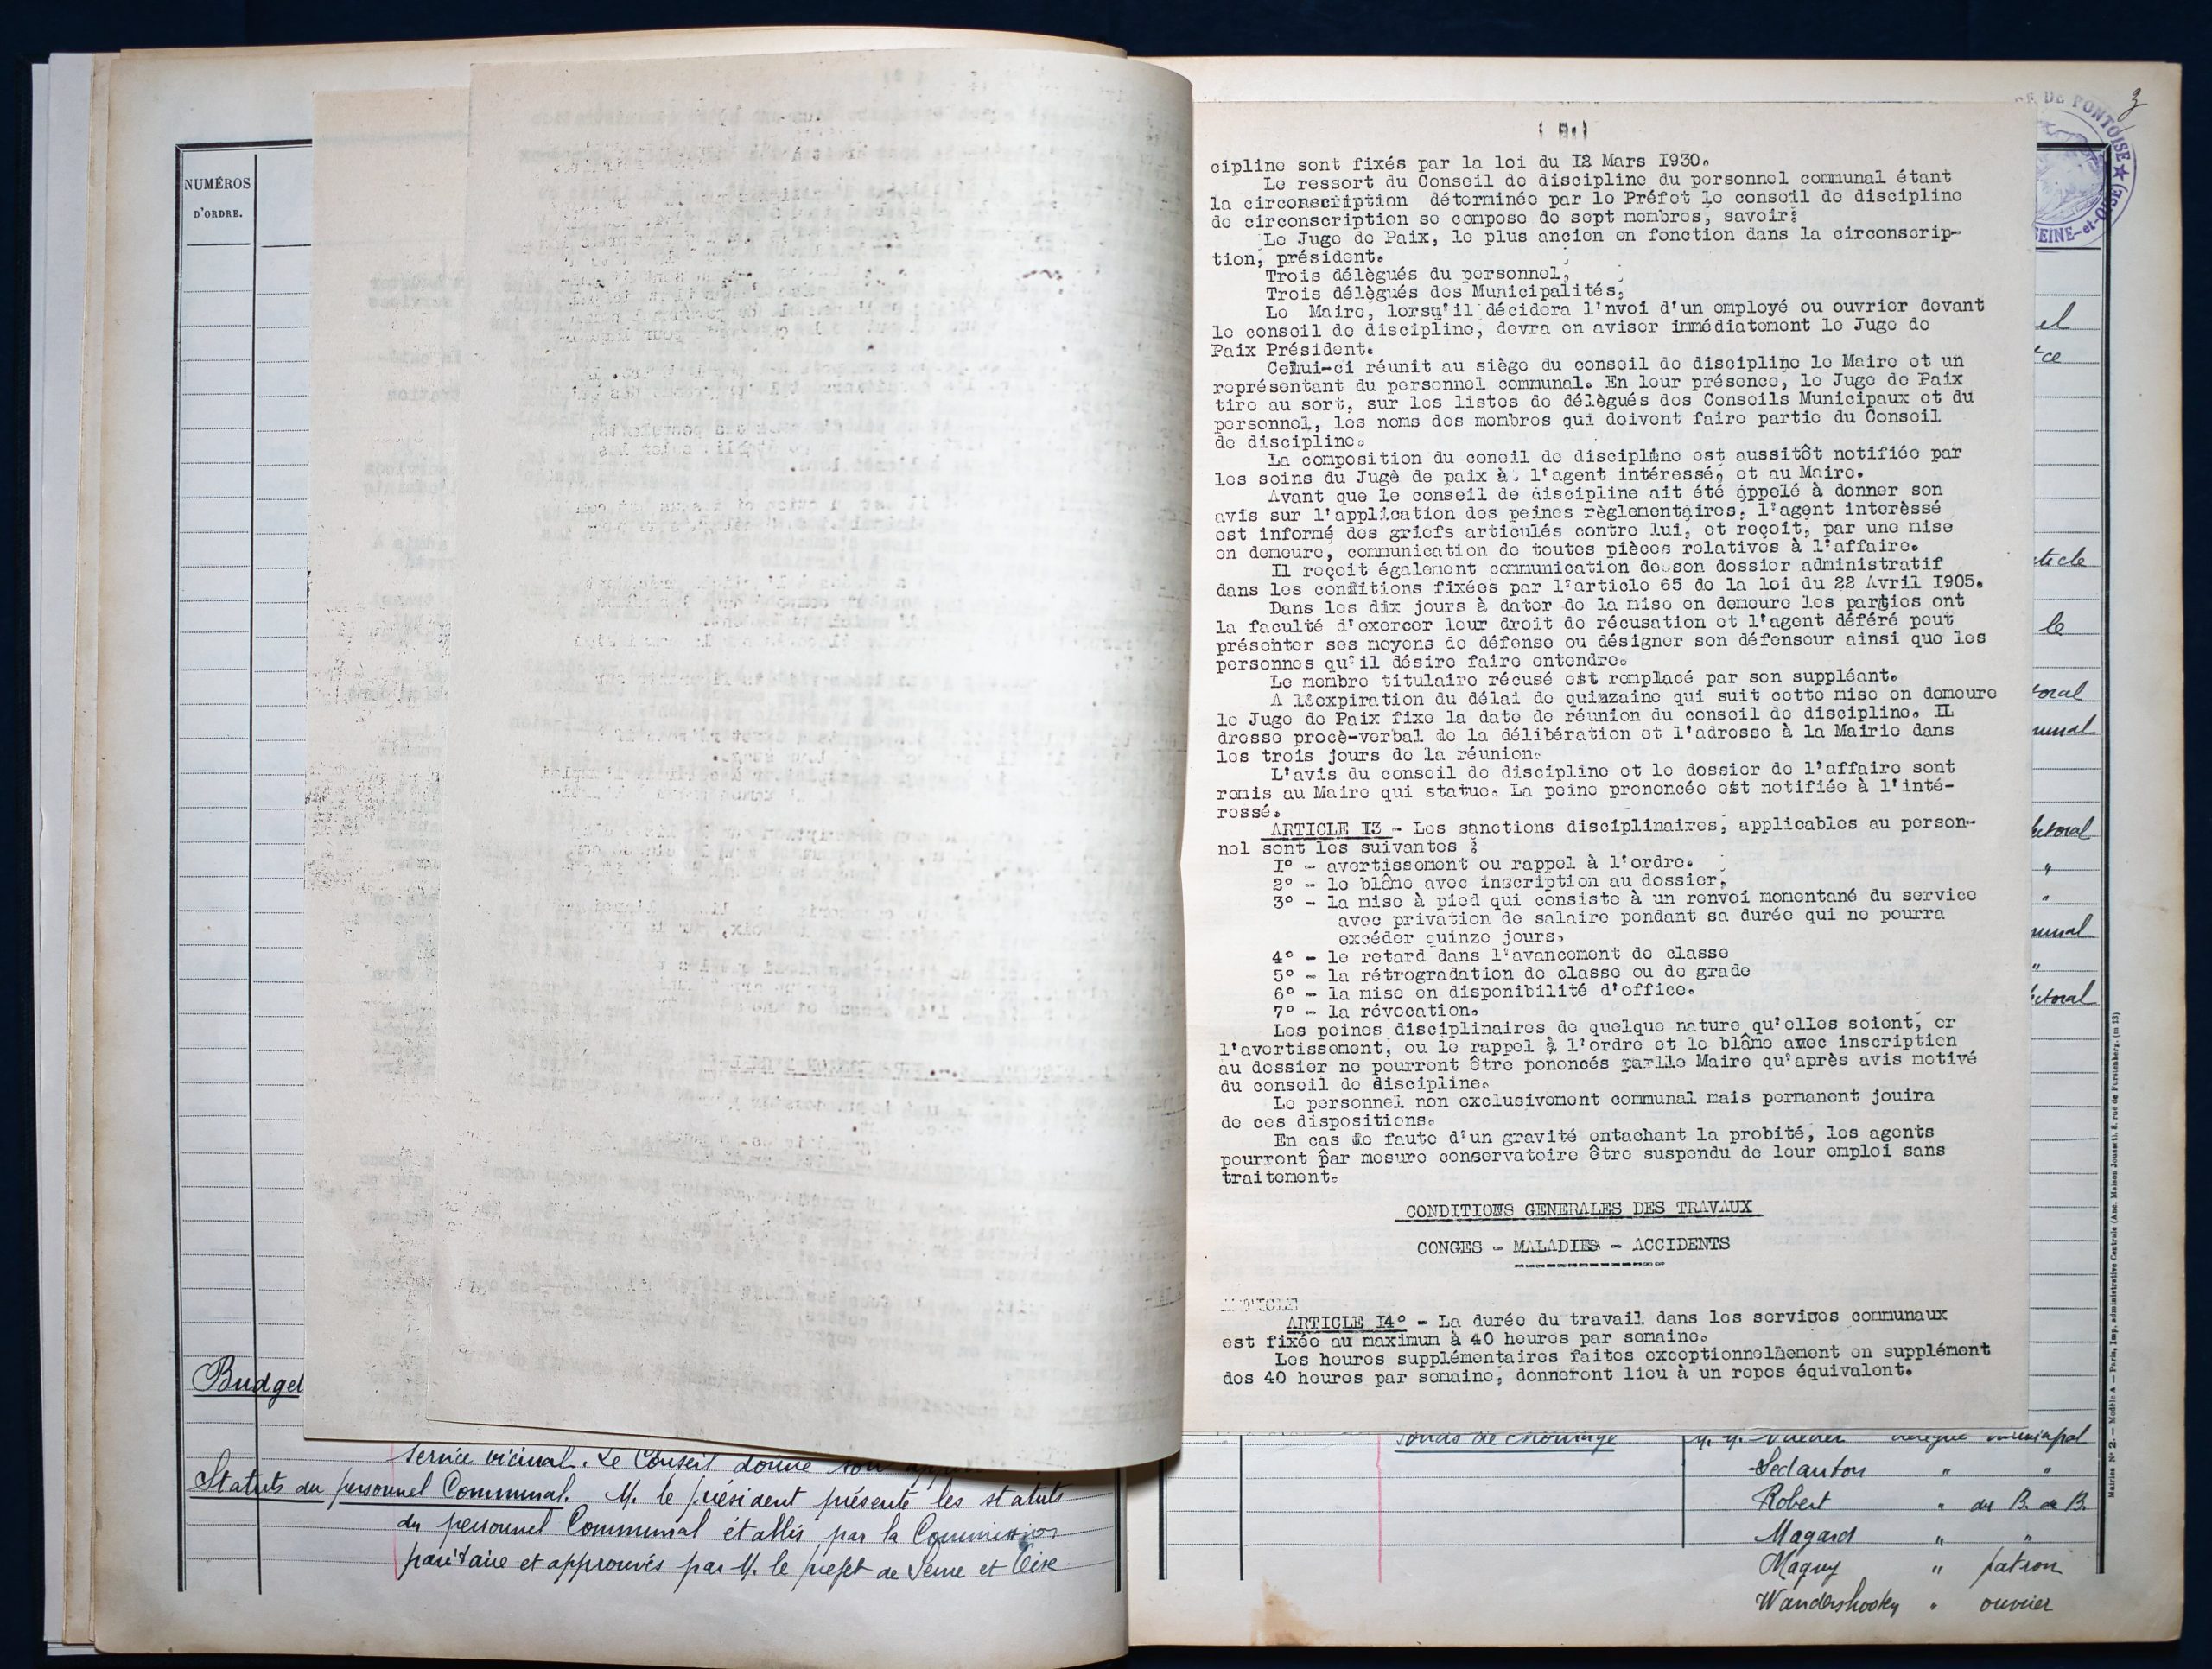 NUMÉROS
D'ORDRE.
Budget
Service vicinal. Le Conseil donne son
Statuts du personnel Communal. M. le président présente les statuts
du personnel Communal établis par la Commission
paritaire et approuvés par M. le préfet de Seine et Oise
cipline sont fixés par la loi du I2 Mars I930.
Le ressort du Conseil de discipline du personnel communal étant
la circonscription déterminée par le Préfet le conseil de discipline
de circonscription se compose de sept membres, savoir:
Le Juge de Paix, le plus ancien en fonction dans la circonscrip-
tion, président.
Trois délègués du personnel,
Trois délègués des Municipalités,
Le Maire, lorsqu'il décidera l'nvoi d'un employé ou ouvrier devant
le conseil de discipline, devra en aviser immédiatement le Juge de
Paix Président.
Celui-ci réunit au siège du conseil de discipline le Maire et un
représentant du personnel communal. En leur présence, le Juge de Paix
tire au sort, sur les listes de délègués des Conseils Municipaux et du
personnel, les noms des membres qui doivent faire partie du Conseil
de discipline.
La composition du coneil de discipline est aussitôt notifiée par
les soins du Juge de paix à l'agent intéressé, et au Maire.
Avant que le conseil de discipline ait été appelé à donner son
avis sur l'application des peines règlementaires, l'agent interèssé
est informé des griefs articulés contre lui, et reçoit, par une mise
en demeure, communication de toutes pièces relatives à l'affaire.
Il reçoit également communication de son dossier administratif
dans les conditions fixées par l'article 65 de la loi du 22 Avril I905.
Dans les dix jours à dater de la mise en demeure les parties ont
la faculté d'exercer leur droit de récusation et l'agent déféré peut
présenter ses moyens de défense ou désigner son défenseur ainsi que les
personnes qu'il désire faire entendre.
Le membre titulaire récusé est remplacé par son suppléant.
A l'expiration du délai de quinzaine qui suit cette mise en demeure
le Juge de Paix fixe la date de réunion du conseil de discipline. IL
dresse procè-verbal de la délibération et l'adresse à la Mairie dans
les trois jours de la réunion.
L'avis du conseil de discipline et le dossier de l'affaire sont
remis au Maire qui statue. La peine prononcée est notifiée à l'inté-
ressé.
ARTICLE I3 - Les sanctions disciplinaires, applicables au person-
nel sont les suivantes :
I° - avertissement ou rappel à l'ordre.
2° - le blâme avec inscription au dossier,
3° - la mise à pied qui consiste à un renvoi momentané du service
avec privation de salaire pendant sa durée qui ne pourra
excéder quinze jours,
4° - le retard dans l'avancement de classe
5° - la rétrogradation de classe ou de grade
6° - la mise en disponibilité d'office.
7° - la révocation.
Les peines disciplinaires de quelque nature qu'elles soient, or
l'avertissement, ou le rappel à l'ordre et le blâme avec inscription
au dossier ne pourront être pononcés par le Maire qu'après avis motivé
du conseil de discipline.
Le personnel non exclusivement communal mais permanent jouira
de ces dispositions.
En cas de faute d'un gravité entachant la probité, les agents
pourront par mesure conservatoire être suspendu de leur emploi sans
traitement.
CONDITIONS GENERALES DES TRAVAUX
CONGES - MALADIES - ACCIDENTS
ARTICLE
ARTICLE I4° - La durée du travail dans les services communaux
est fixée au maximum à 40 heures par semaine.
Les heures supplémentaires faites exceptionnellement en supplément
des 40 heures par semaine, donneront lieu à un repos équivalent.
DE PONTOISE
SEINE-et-OISE
3
el
ce
article
le
toral
munal
ctoral
"
"
munal
"
ctoral
Fonds de chômage délégué municipal
Sedanton " "
Robert " du B. de B.
Magard " "
Maguy " patron
Wandershosky " ouvrier
Mairies N° 2. — Modèle A — Paris, Imp. administrative Centrale (Anc. Maison Jousset), 8, rue de Furstenberg. (m 13)